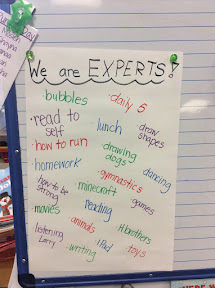 We are EXPERTS!
bubbles
daily 5
read to self
lunch
draw shapes
how to run
drawing dogs
homework
dancing
gymnastics
how to be strong
minecraft
games
movies
reading
animals
brothers
listening
Larry
writing
iPad
toys